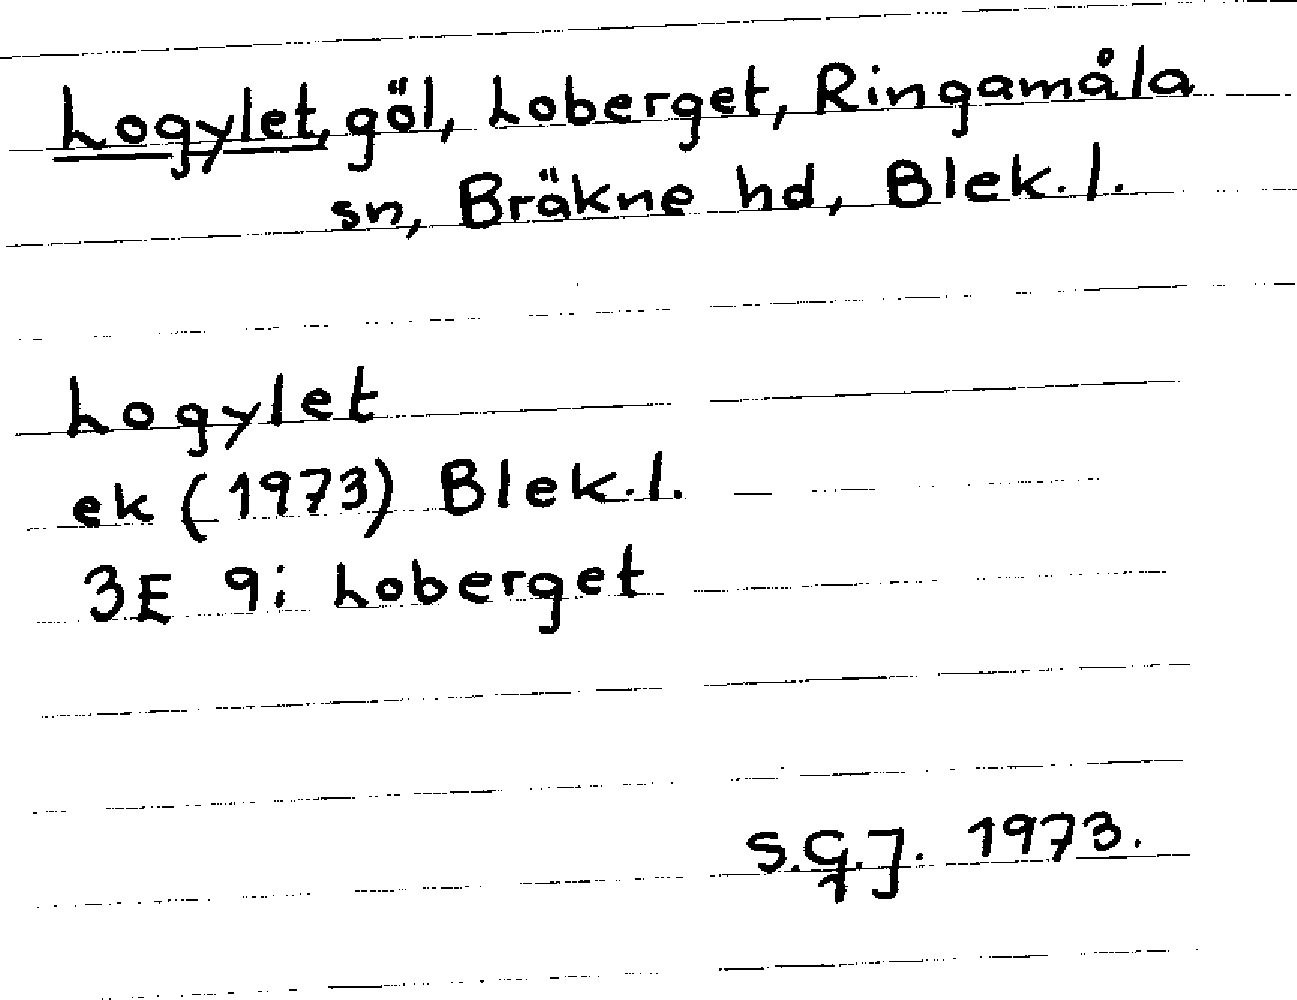 Logylet, göl, Loberget, Ringamåla
sn, Bräkne hd, Blek. l.
Logylet
ek (1973) Blek. l.
3E 9i Loberget
S.G.J. 1973.